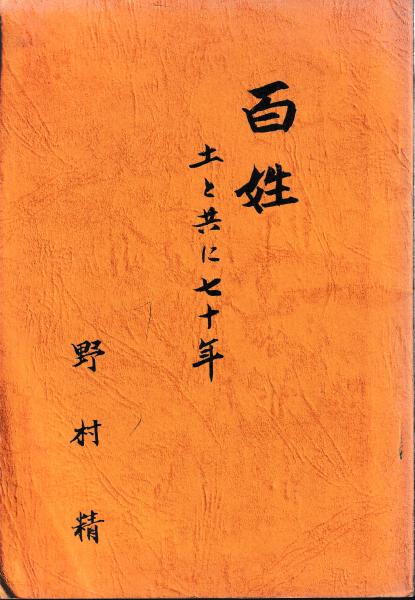 百姓
土と共に七十年
野村精